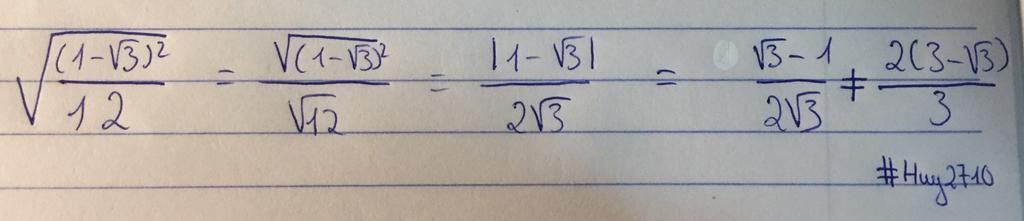 √((1-√3)²/12) = √(1-√3)²/√12 = |1-√3|/2√3 = √3-1/2√3 ≠ 2(3-√3)/3
#Huy2710